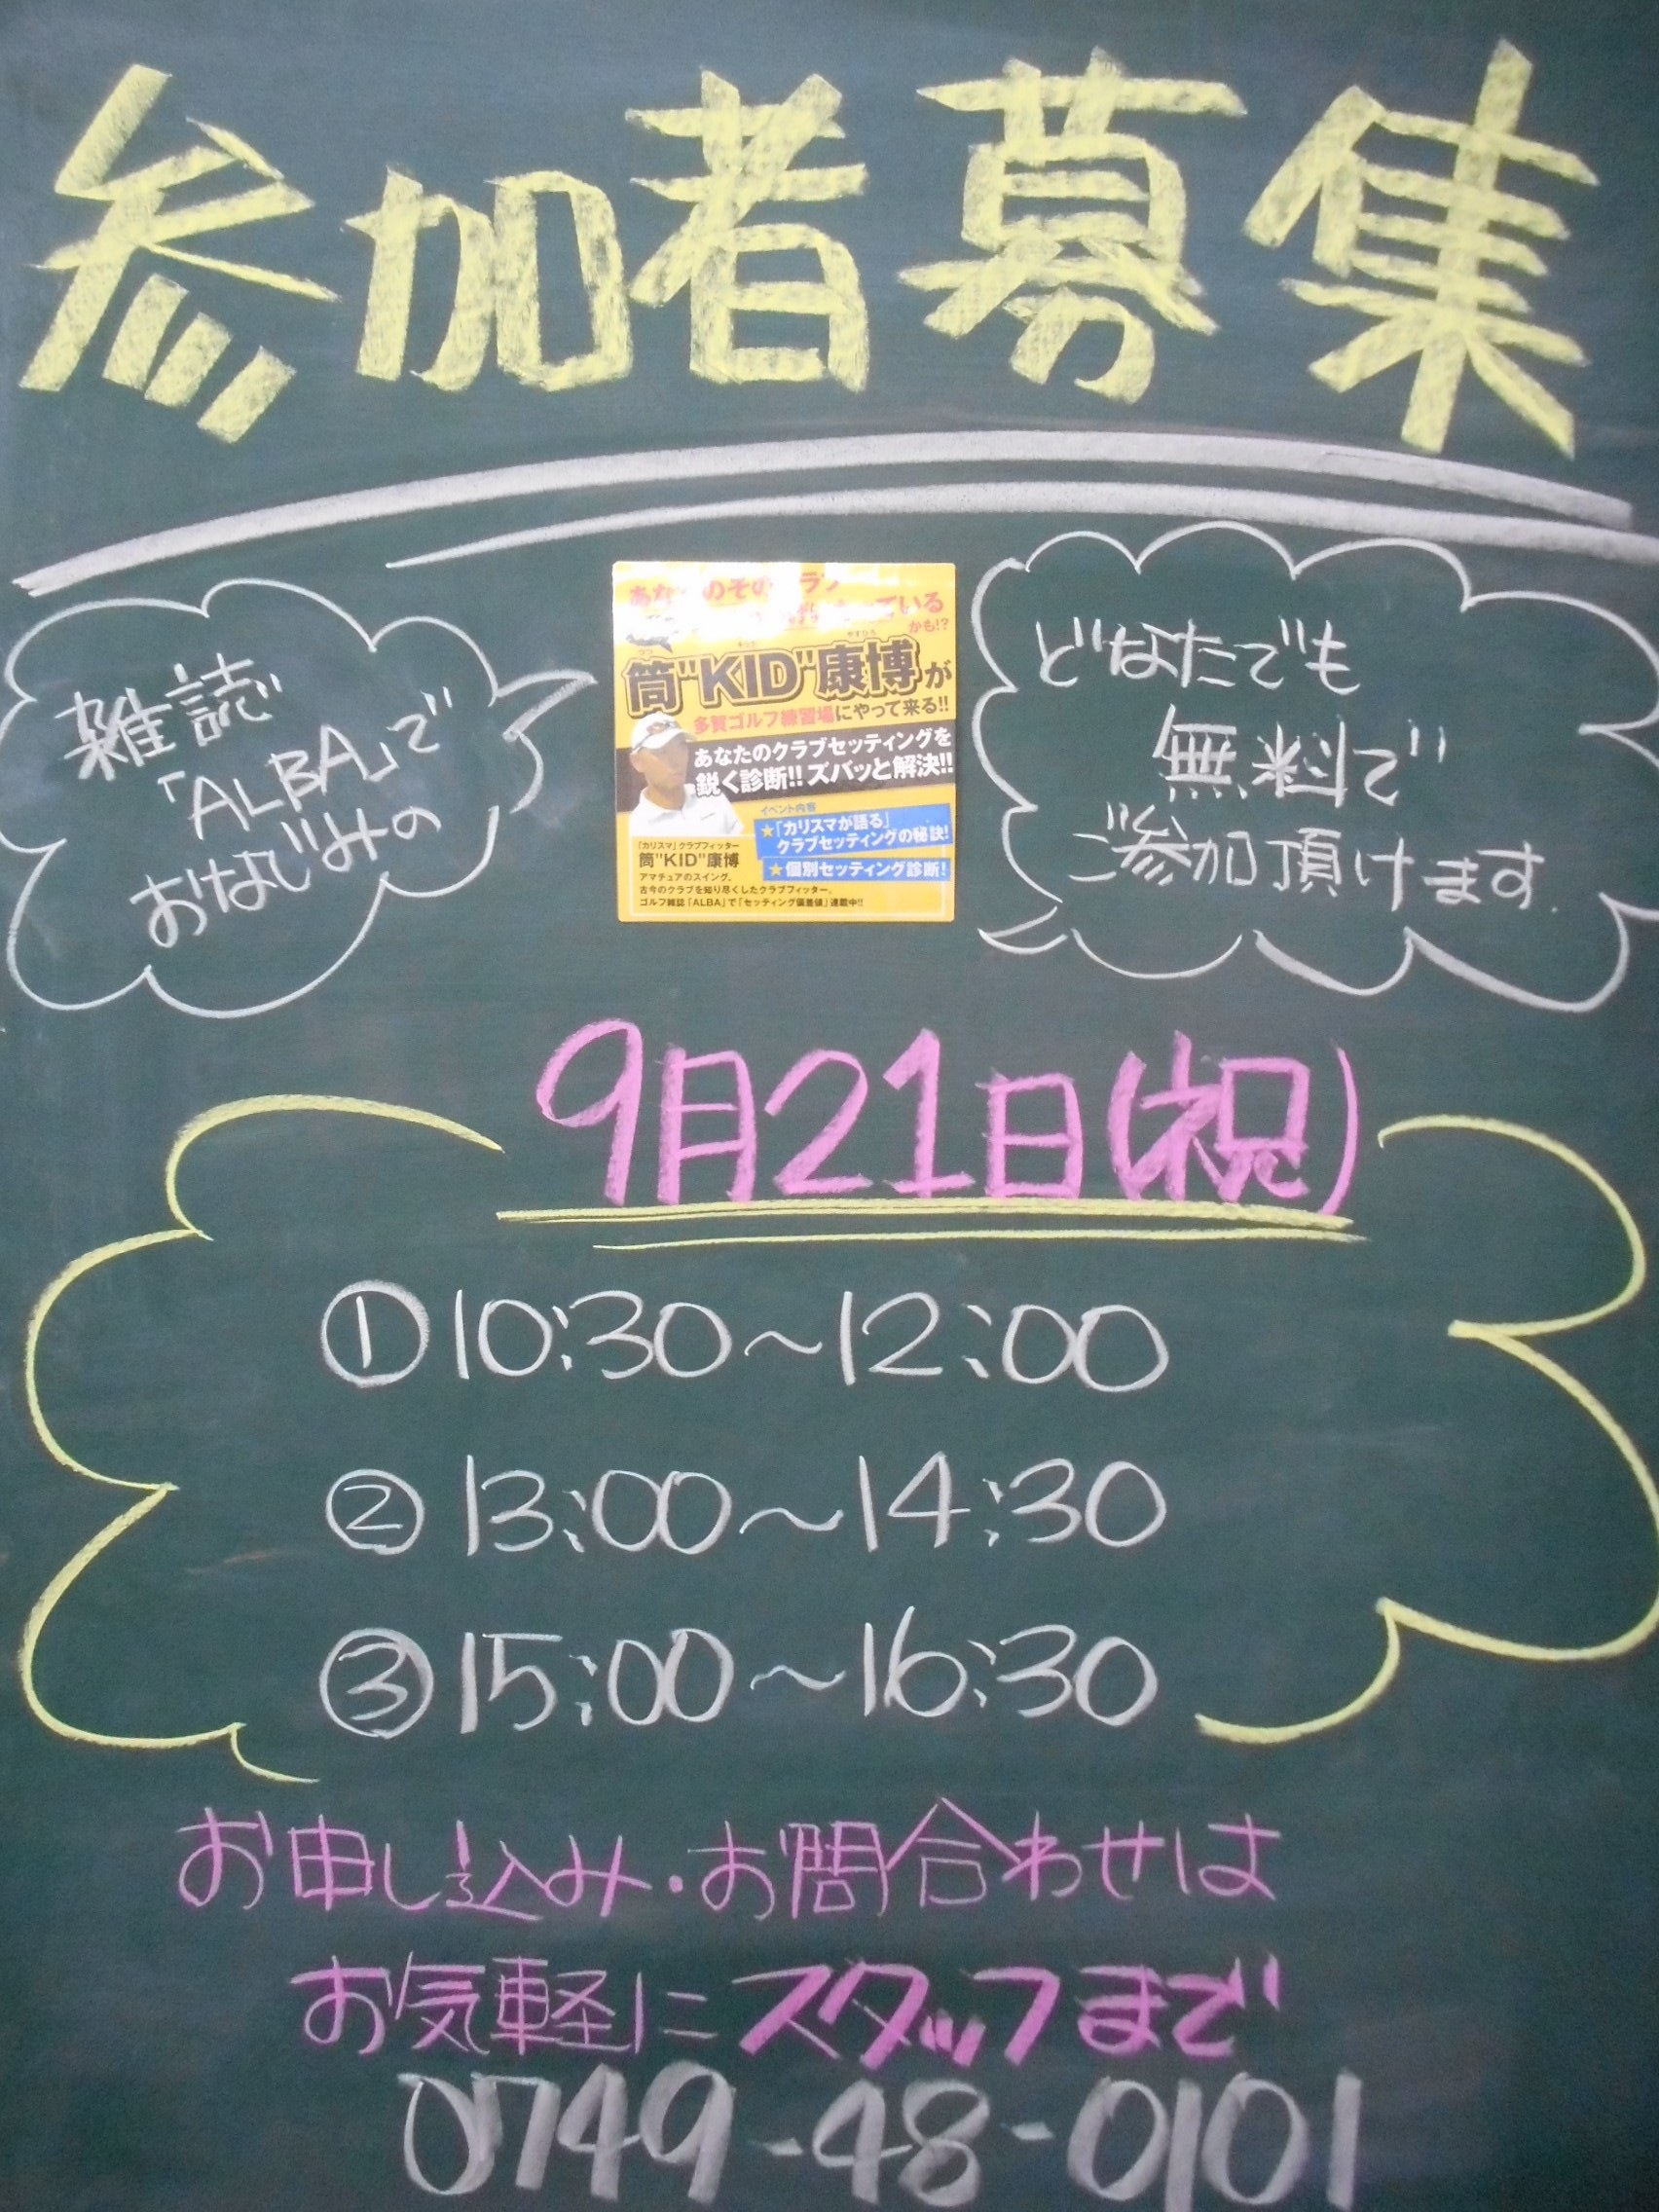 参加者募集
雑誌
「ALBA」で
おなじみの
かも!?
筒"KID"康博が
多賀ゴルフ練習場にやって来る!!
あなたのクラブセッティングを
鋭く診断!! ズバッと解決!!
イベント内容
★「カリスマが語る」
クラブセッティングの秘訣!
★個別セッティング診断!
「カリスマ」クラブフィッター
筒"KID"康博
アマチュアのスイング、
古今のクラブを知り尽くしたクラブフィッター。
ゴルフ雑誌「ALBA」で「セッティング偏差値」連載中!!
どなたでも
無料で
ご参加頂けます.
9月21日(祝)
①10:30～12:00
②13:00～14:30
③15:00～16:30
お申し込み・お問合わせは
お気軽にスタッフまで
0749-48-0101